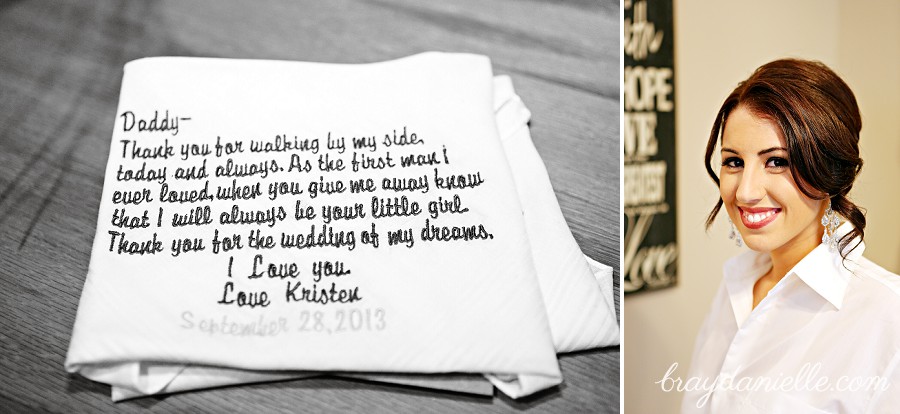 Daddy-
Thank you for walking by my side,
today and always. As the first man i
ever loved, when you give me away know
that I will always be your little girl.
Thank you for the wedding of my dreams.
I Love you.
Love Kristen
September 28, 2013
HOPE
Love
braydanielle.com